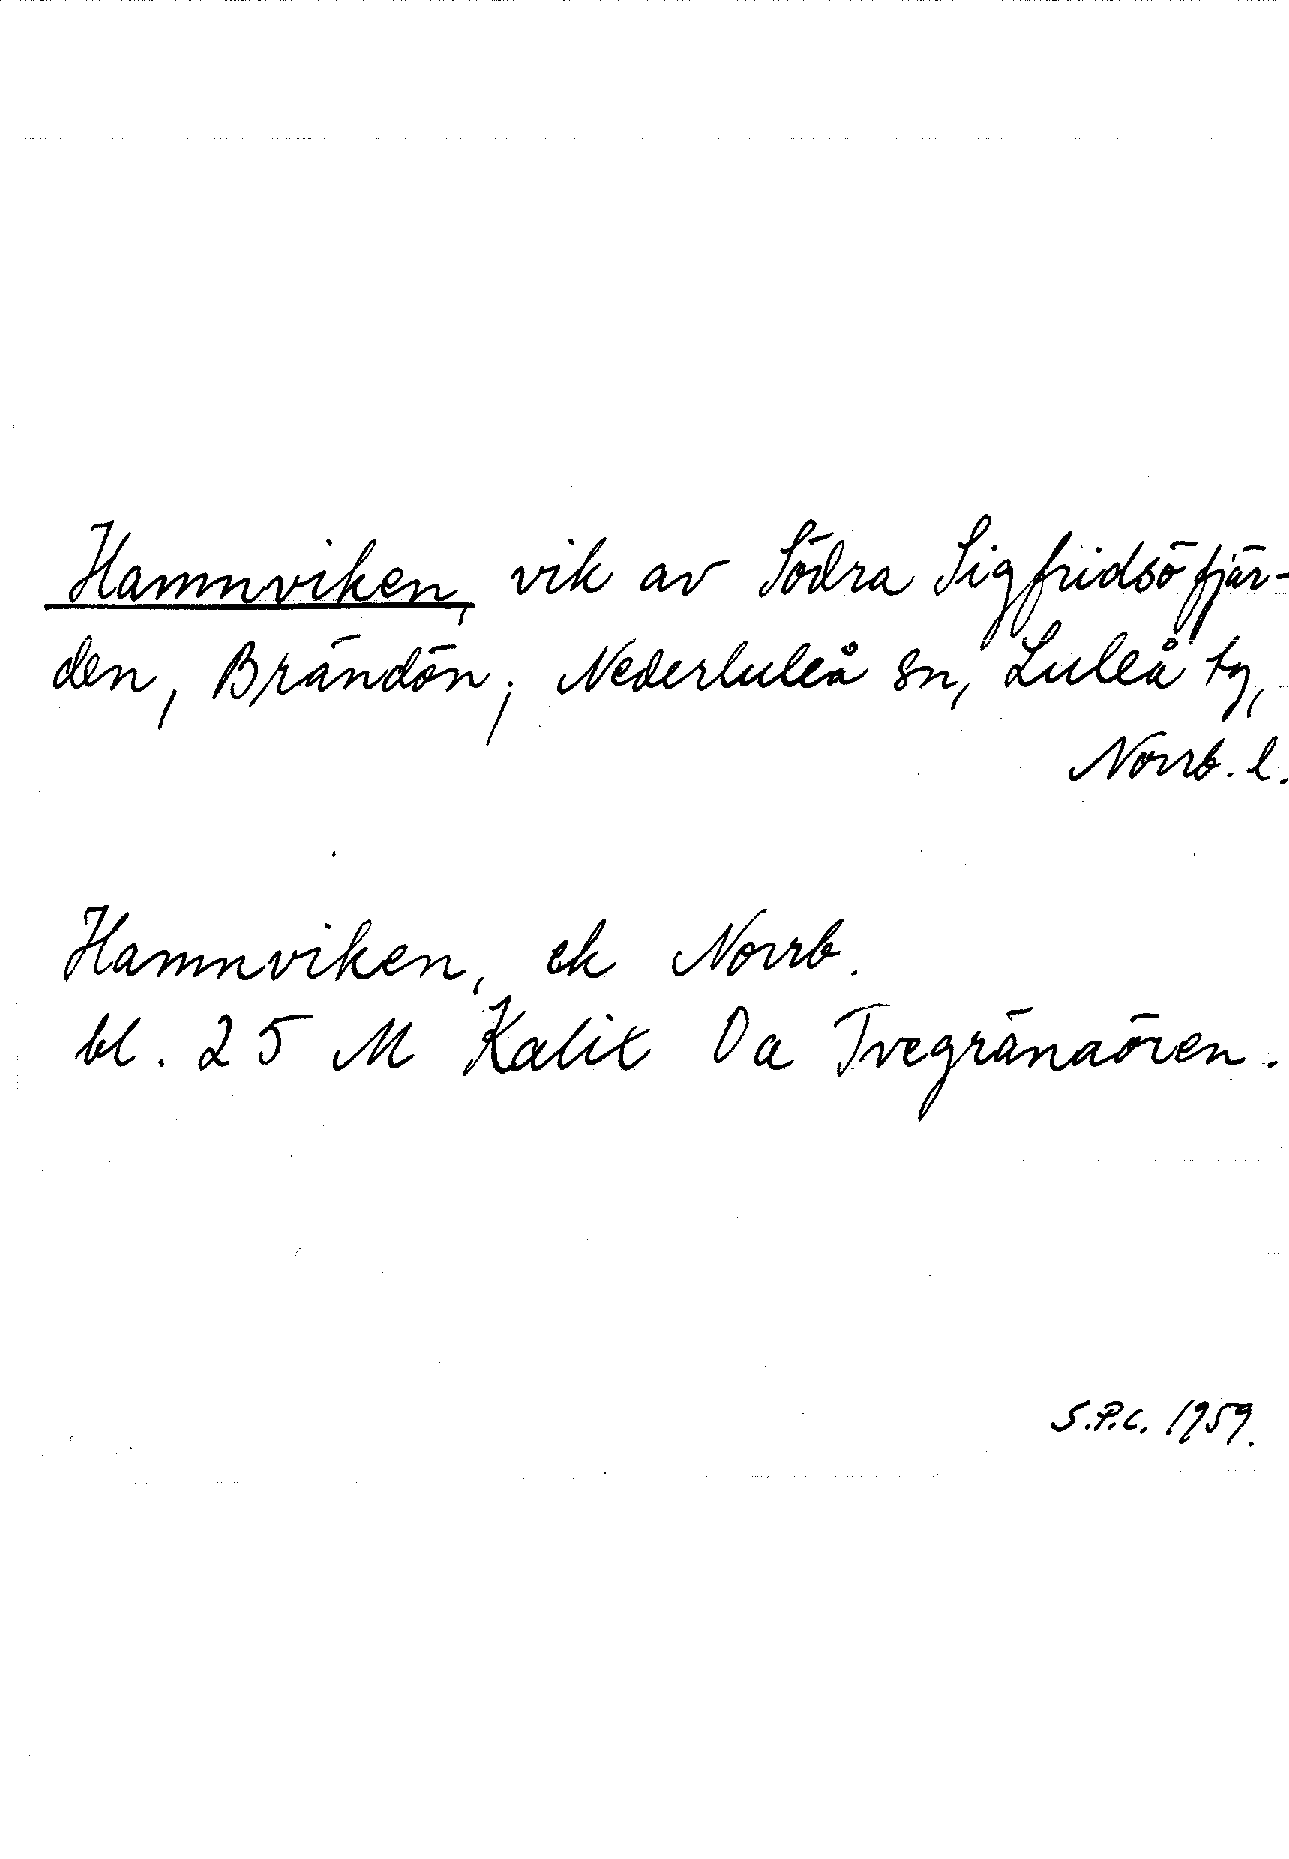 Hamnviken, vik av Södra Sigfridsöfjär-
den, Brändön; Nederluleå sn, Luleå tg,
Norrb. l.
Hamnviken, ek Norrb.
bl. 25 M Kalix 0a Tvegränaören.
S.P.C. 1959.